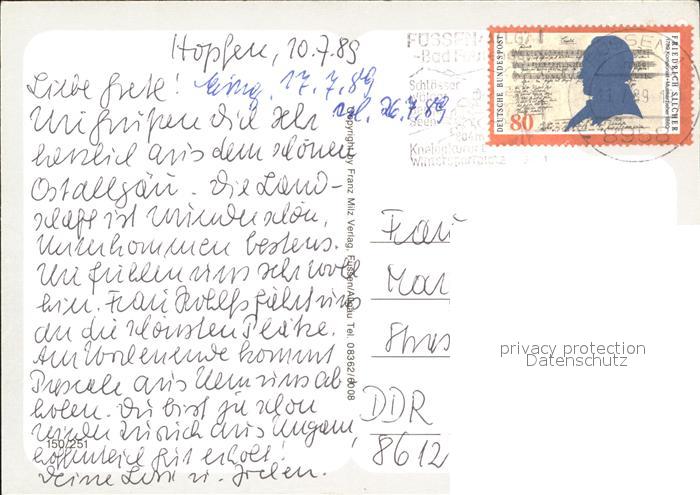 Hopfen, 10.7.89
Liebe Grete! eing. 17.7.89
Wir grüßen dich sehr
herzlich aus dem schönen
Ostallgäu. Die Land-
schaft ist wunderschön,
Unterkommen bestens.
Wir fühlen uns sehr wohl
hier. Frau fährt uns
an die schönsten Plätze.
Am Wochenende kommt
aus uns ab
holen. Du bist ja schon
wieder zurück aus Ungarn,
hoffentlich gut erholt!
Deine u.
150/251
Copyright by Franz Milz Verlag, Füssen/Allgäu Tel. 08362/8008
FÜSSEN
-Bad
Schlösser
Seen
Kneippkurort
Wintersportplatz
DEUTSCHE BUNDESPOST
80
FRIEDRICH SILCHER
8958
Frau
Mar
Stras
DDR
8612
privacy protection
Datenschutz